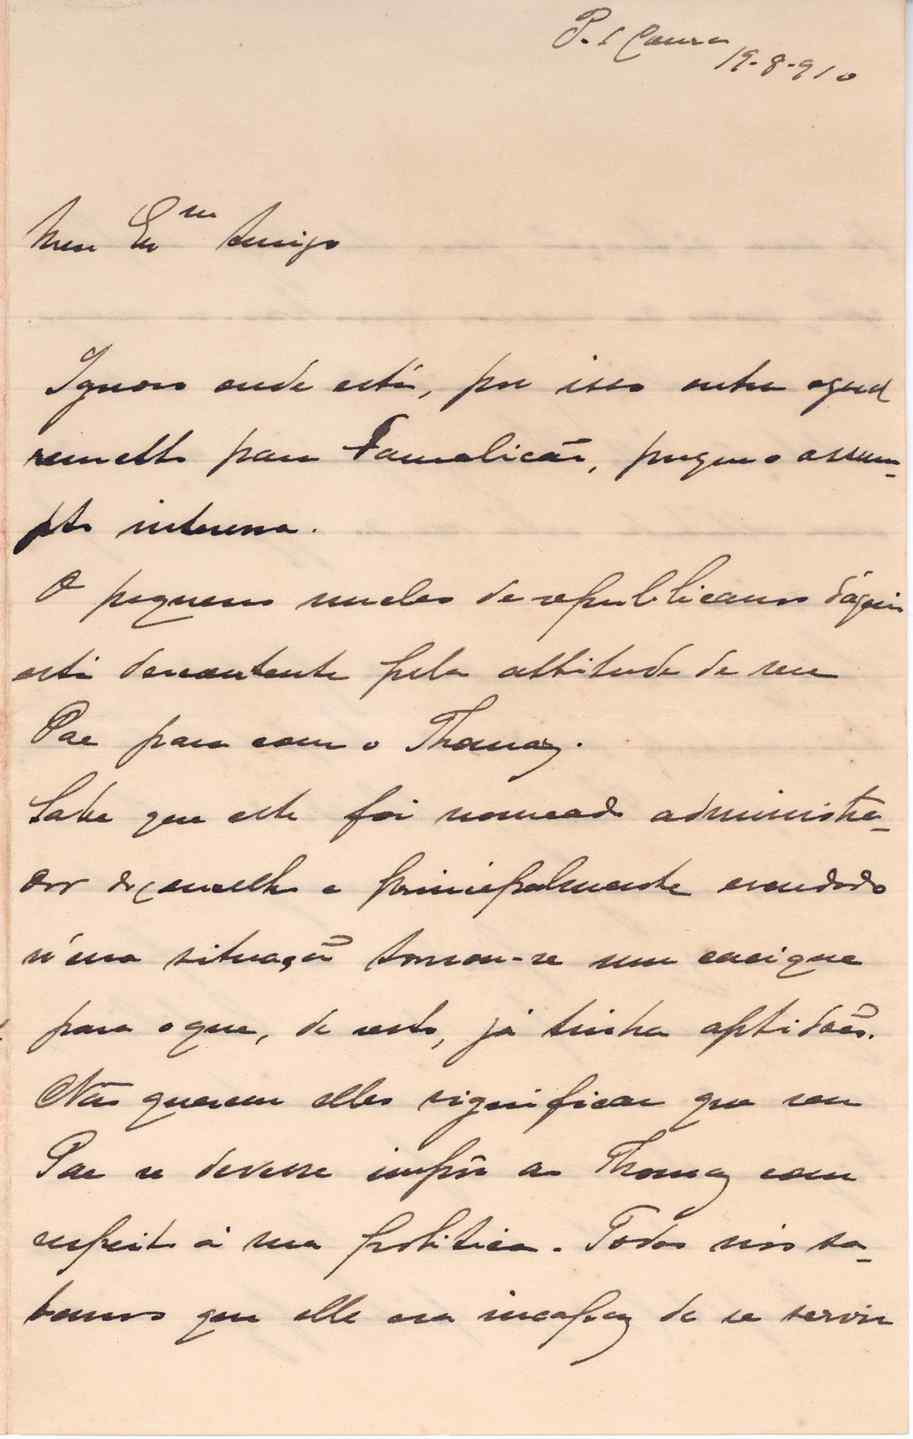 P. de Coura
19-8-910
Meu Exmo Amigo
Ignoro onde está, por isso outra egual
remetto para Famalicão, porque o assum-
pto interessa.
O pequeno nucleo de republicanos d'aqui
está descontente pela attitude de seu
Pae para com o Thomaz.
Sabe que este foi nomeado administra-
dor do concelho e principalmente escudado
n'essa situação tornou-se um cacique
para o que, de resto, já tinha aptidões.
Não querem elles significar que seu
Pae se devesse impôr ao Thomaz com
respeito á sua politica. Todos nós sa-
bemos que elle era incapaz de se servir